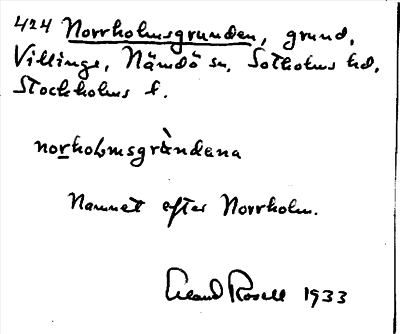 424 Norrholmsgrunden, grund,
Villinge, Nämdö sn, Sotholms hd,
Stockholms l.
norholmsgràndena
Namnet efter Norrholm.
Erland Rosell 1933